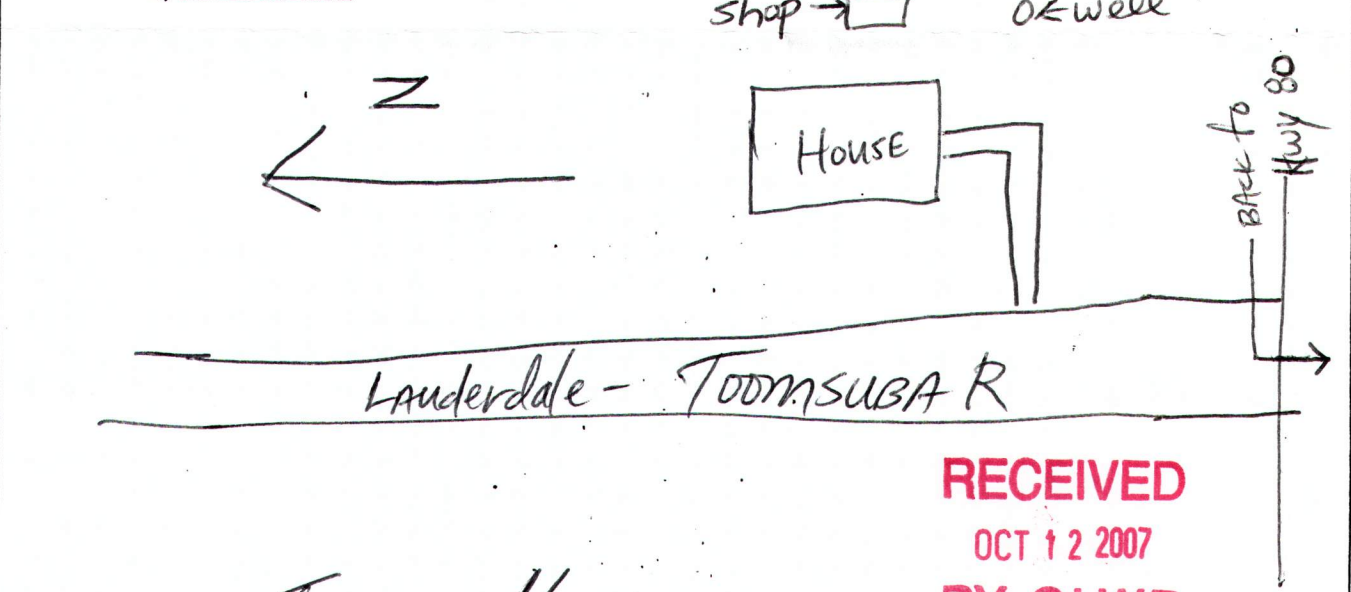 Shop
well
N
HOUSE
BACK to
Hwy 80
Lauderdale - TOOMSUBA R
RECEIVED
OCT 12 2007